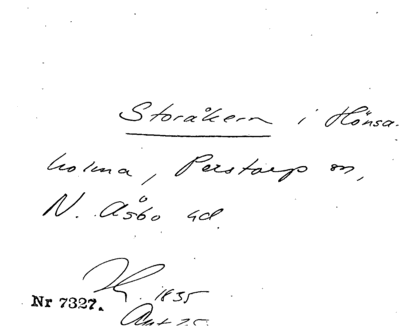 Storåkern i Hönsa-
holma, Perstorp sn,
N. Åsbo hd.
1835
Nr 7327.